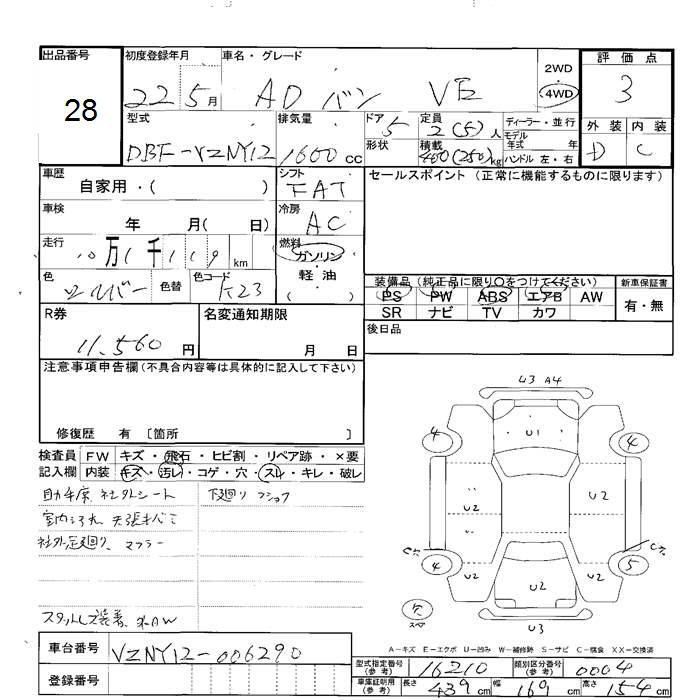 出品番号 初度登録年月 車名・グレード 2WD 評価点
28 22 5月 AD バン VE 4WD 3
型式 排気量 ドア 定員 ディーラー・並行 外装 内装
DBF-VZNY12 1600cc 5 2(5)人 モデル年式 年 D C
形状 積載 400(250)kg ハンドル 左・右
車歴 シフト セールスポイント (正常に機能するものに限ります)
自家用・( ) FAT
車検 冷房
年 月( 日) AC
走行 燃料
10万1千119km ガソリン・軽油
色 色替 色コード 装備品 (純正品に限り○をつけてください) 新車保証書
シルバー K23 PS PW ABS エアB AW 有・無
SR ナビ TV カワ
R券 名変通知期限 後日品
11,560円 月 日
注意事項申告欄(不具合内容等は具体的に記入して下さい)
修復歴 有 〔箇所 〕
検査員 FW キズ・飛石・ヒビ割・リペア跡・×要
記入欄 内装 キズ・汚レ・コゲ・穴・スレ・キレ・破レ
助手席 社外シート 下廻り
室内
社外足廻り、マフラー
スタッドレス装着
U3 A4
U1
4 4
U2 U2
U2 U2
4 5
U2 U2
U2
穴
スペア
U3
A-キズ E-エクボ U-凹み W-補修跡 S-サビ C-腐食 XX-交換済
車台番号 VZNY12-006290
型式指定番号(参考) 16210 類別区分番号(参考) 0004
登録番号
車庫証明用(参考) 長さ 439cm 幅 169cm 高さ 154cm